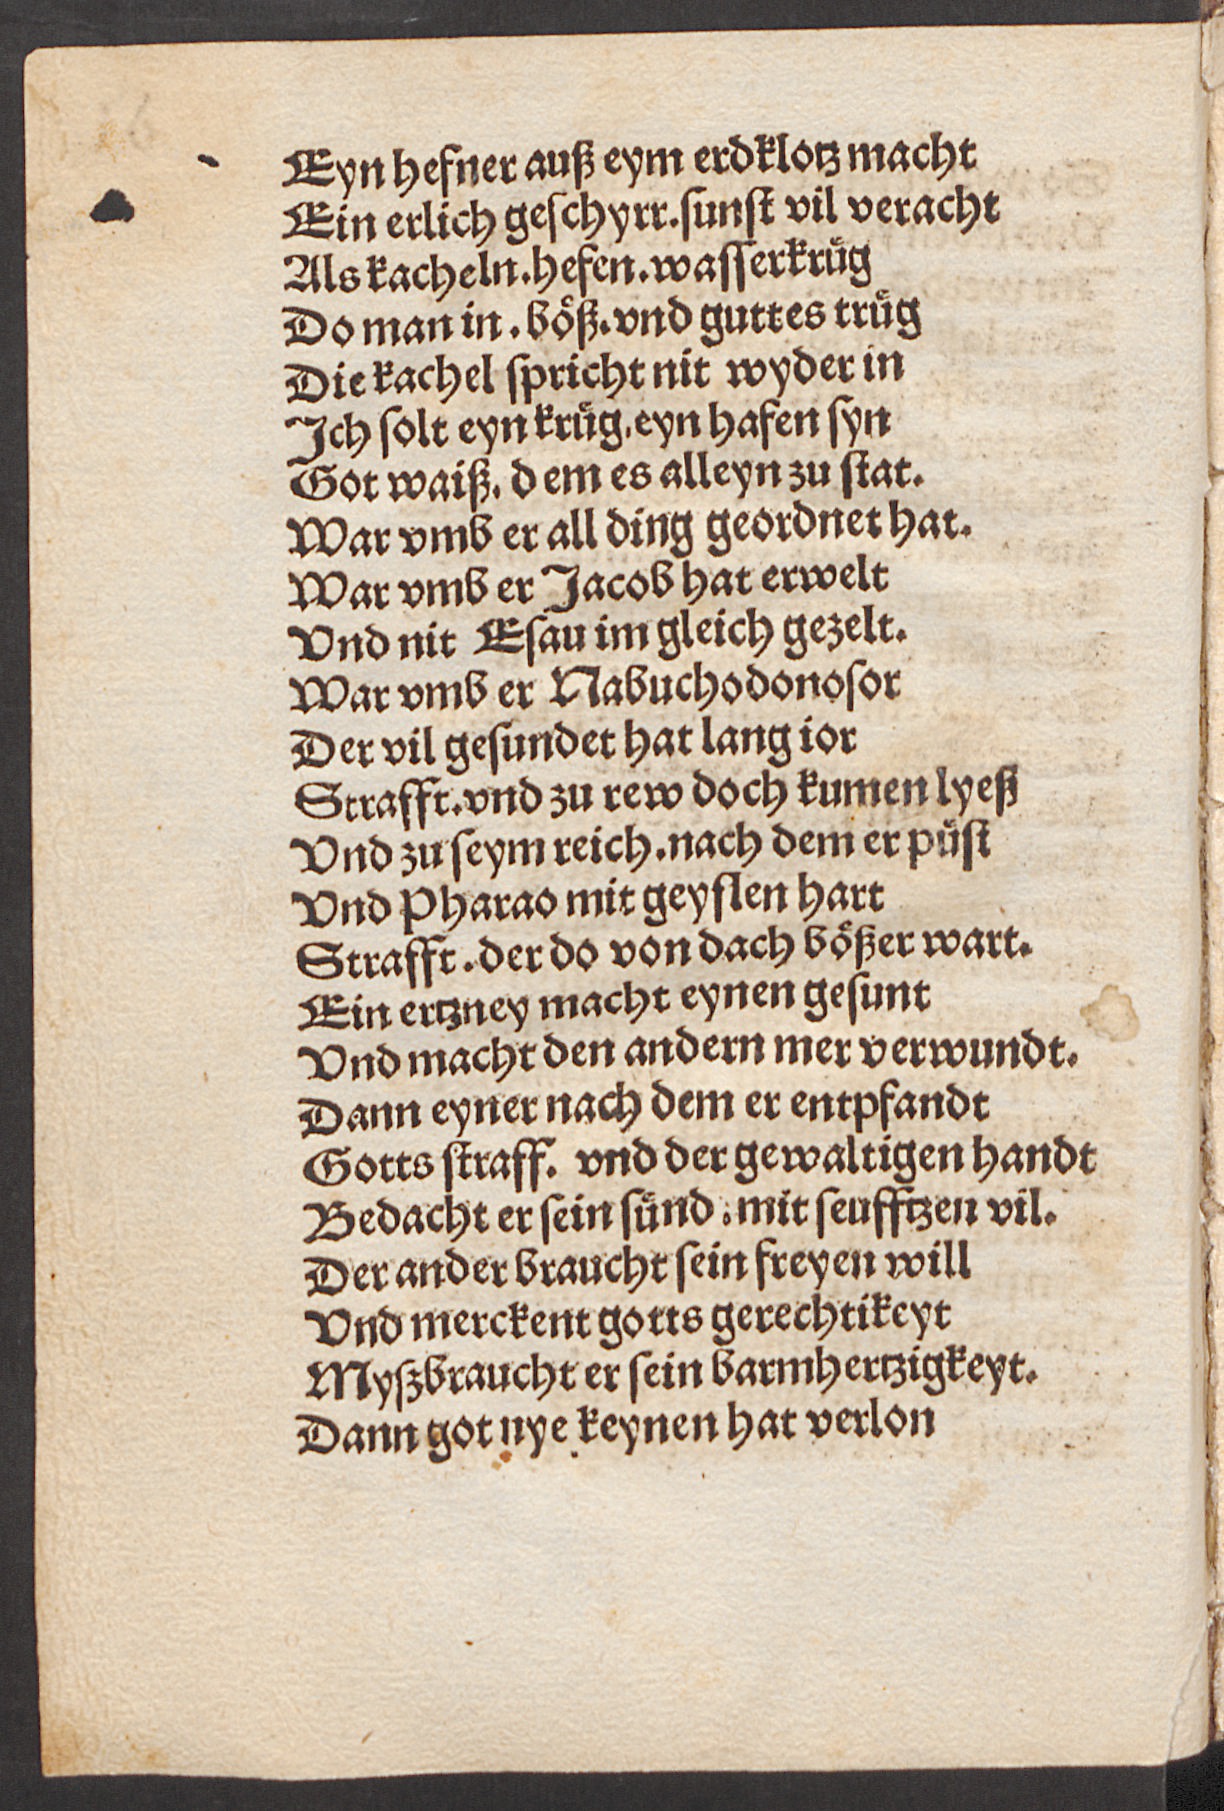 Eyn hefner auß eym erdklotz macht
Ein erlich geschyrr. sunst vil veracht
Als kacheln. hefen. wasserkruͤg
Do man in. boͤß. vnd guttes truͤg
Die kachel spricht nit wyder in
Ich solt eyn kruͤg. eyn hafen syn
Got waiß. dem es alleyn zu stat.
War vmb er all ding geordnet hat.
War vmb er Jacob hat erwelt
Vnd nit Esau im gleich gezelt.
War vmb er Nabuchodonosor
Der vil gesundet hat lang ior
Strafft. vnd zu rew doch kumen lyeß
Vnd zu seym reich. nach dem er puͤst
Vnd Pharao mit geyslen hart
Strafft. der do von dach boͤßer wart.
Ein ertzney macht eynen gesunt
Vnd macht den andern mer verwundt.
Dann eyner nach dem er entpfandt
Gotts straff. vnd der gewaltigen handt
Bedacht er sein suͤnd. mit seufftzen vil.
Der ander braucht sein freyen will
Vnd merckent gotts gerechtikeyt
Myßbraucht er sein barmhertzigkeyt.
Dann got nye keynen hat verlon